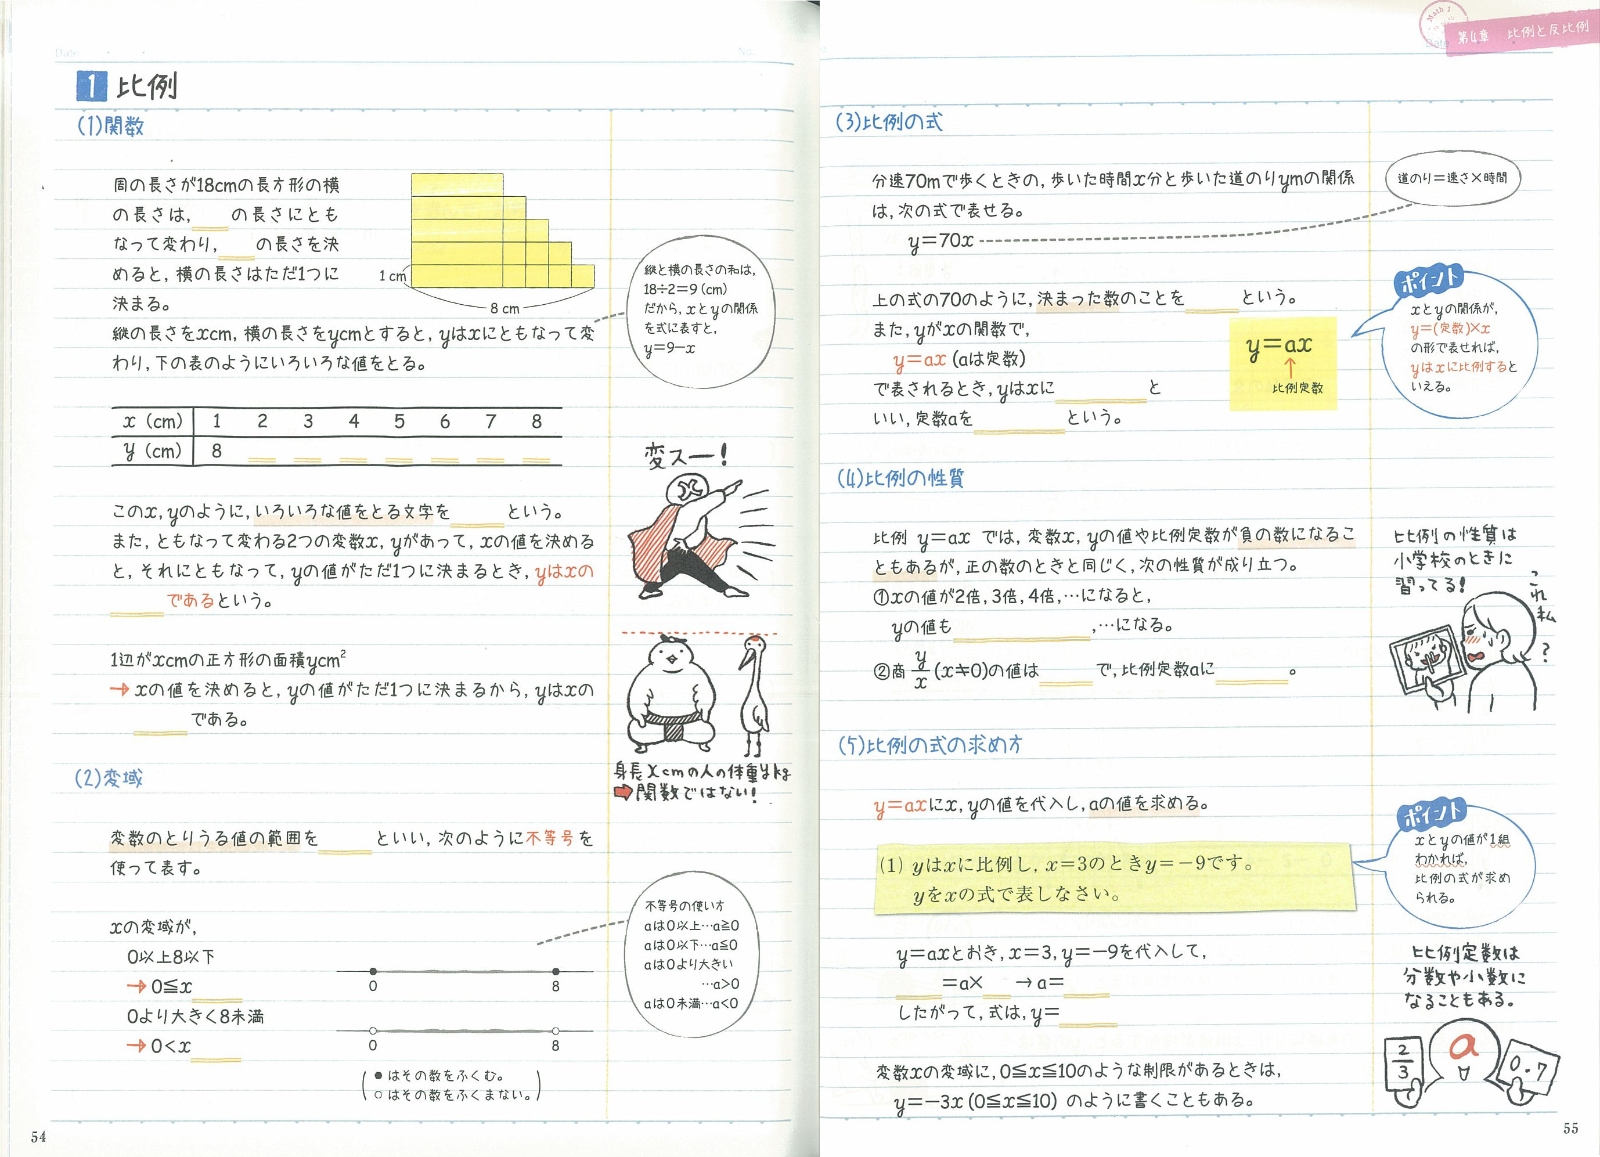 Date
No.
1 比例
(1)関数
周の長さが18cmの長方形の横
の長さは, の長さにとも
なって変わり, の長さを決
めると, 横の長さはただ1つに
決まる。
1 cm
8 cm
縦の長さをxcm, 横の長さをycmとすると, yはxにともなって変
わり, 下の表のようにいろいろな値をとる。
縦と横の長さの和は,
18÷2=9 (cm)
だから, xとyの関係
を式に表すと,
y=9-x
x (cm) 1 2 3 4 5 6 7 8
y (cm) 8
変スー!
x
このx, yのように, いろいろな値をとる文字を という。
また, ともなって変わる2つの変数x, yがあって, xの値を決める
と, それにともなって, yの値がただ1つに決まるとき, yはxの
であるという。
1辺がxcmの正方形の面積ycm²
→ xの値を決めると, yの値がただ1つに決まるから, yはxの
である。
身長xcmの人の体重ykg
➡関数ではない!
(2)変域
変数のとりうる値の範囲を といい, 次のように不等号を
使って表す。
xの変域が,
0以上8以下
→ 0≦x
0 8
0より大きく8未満
→ 0<x
0 8
●はその数をふくむ。
○はその数をふくまない。
不等号の使い方
aは0以上…a≧0
aは0以下…a≦0
aは0より大きい
…a>0
aは0未満…a<0
54
Math 1
第4章 比例と反比例
(3)比例の式
分速70mで歩くときの, 歩いた時間x分と歩いた道のりymの関係
は, 次の式で表せる。
y=70x
道のり=速さ×時間
上の式の70のように, 決まった数のことを という。
また, yがxの関数で,
y=ax (aは定数)
で表されるとき, yはxに と
いい, 定数aを という。
y=ax
↑
比例定数
ポイント
xとyの関係が,
y=(定数)×x
の形で表せれば,
yはxに比例すると
いえる。
(4)比例の性質
比例 y=ax では, 変数x, yの値や比例定数が負の数になるこ
ともあるが, 正の数のときと同じく, 次の性質が成り立つ。
①xの値が2倍, 3倍, 4倍, …になると,
yの値も , …になる。
②商 y/x (x≠0)の値は で, 比例定数aに 。
比例の性質は
小学校のときに
習ってる!
これ私
?
(5)比例の式の求め方
y=axにx, yの値を代入し, aの値を求める。
(1) yはxに比例し, x=3のときy=-9です。
yをxの式で表しなさい。
ポイント
xとyの値が1組
わかれば,
比例の式が求め
られる。
y=axとおき, x=3, y=-9を代入して,
=a× → a=
したがって, 式は, y=
比例定数は
分数や小数に
なることもある。
2/3
a
0.7
変数xの変域に, 0≦x≦10のような制限があるときは,
y=-3x (0≦x≦10) のように書くこともある。
55